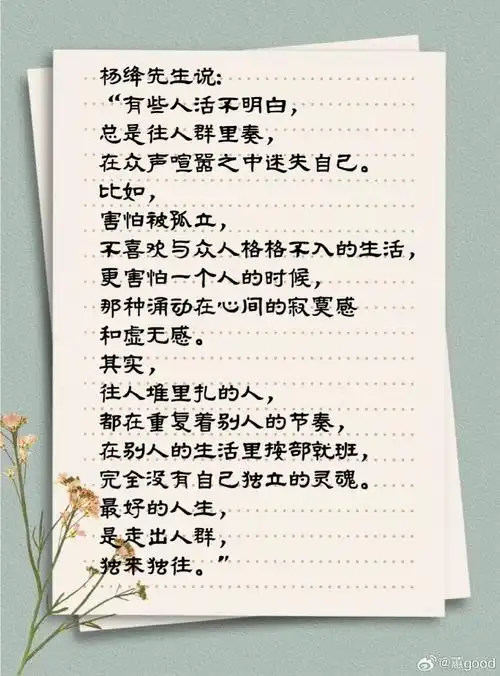 杨绛先生说:
“有些人活不明白,
总是往人群里奏,
在众声喧嚣之中迷失自己。
比如,
害怕被孤立,
不喜欢与众人格格不入的生活,
更害怕一个人的时候,
那种涌动在心间的寂寞感
和虚无感。
其实,
往人堆里扎的人,
都在重复着别人的节奏,
在别人的生活里按部就班,
完全没有自己独立的灵魂。
最好的人生,
是走出人群,
独来独往。”
@蕙good